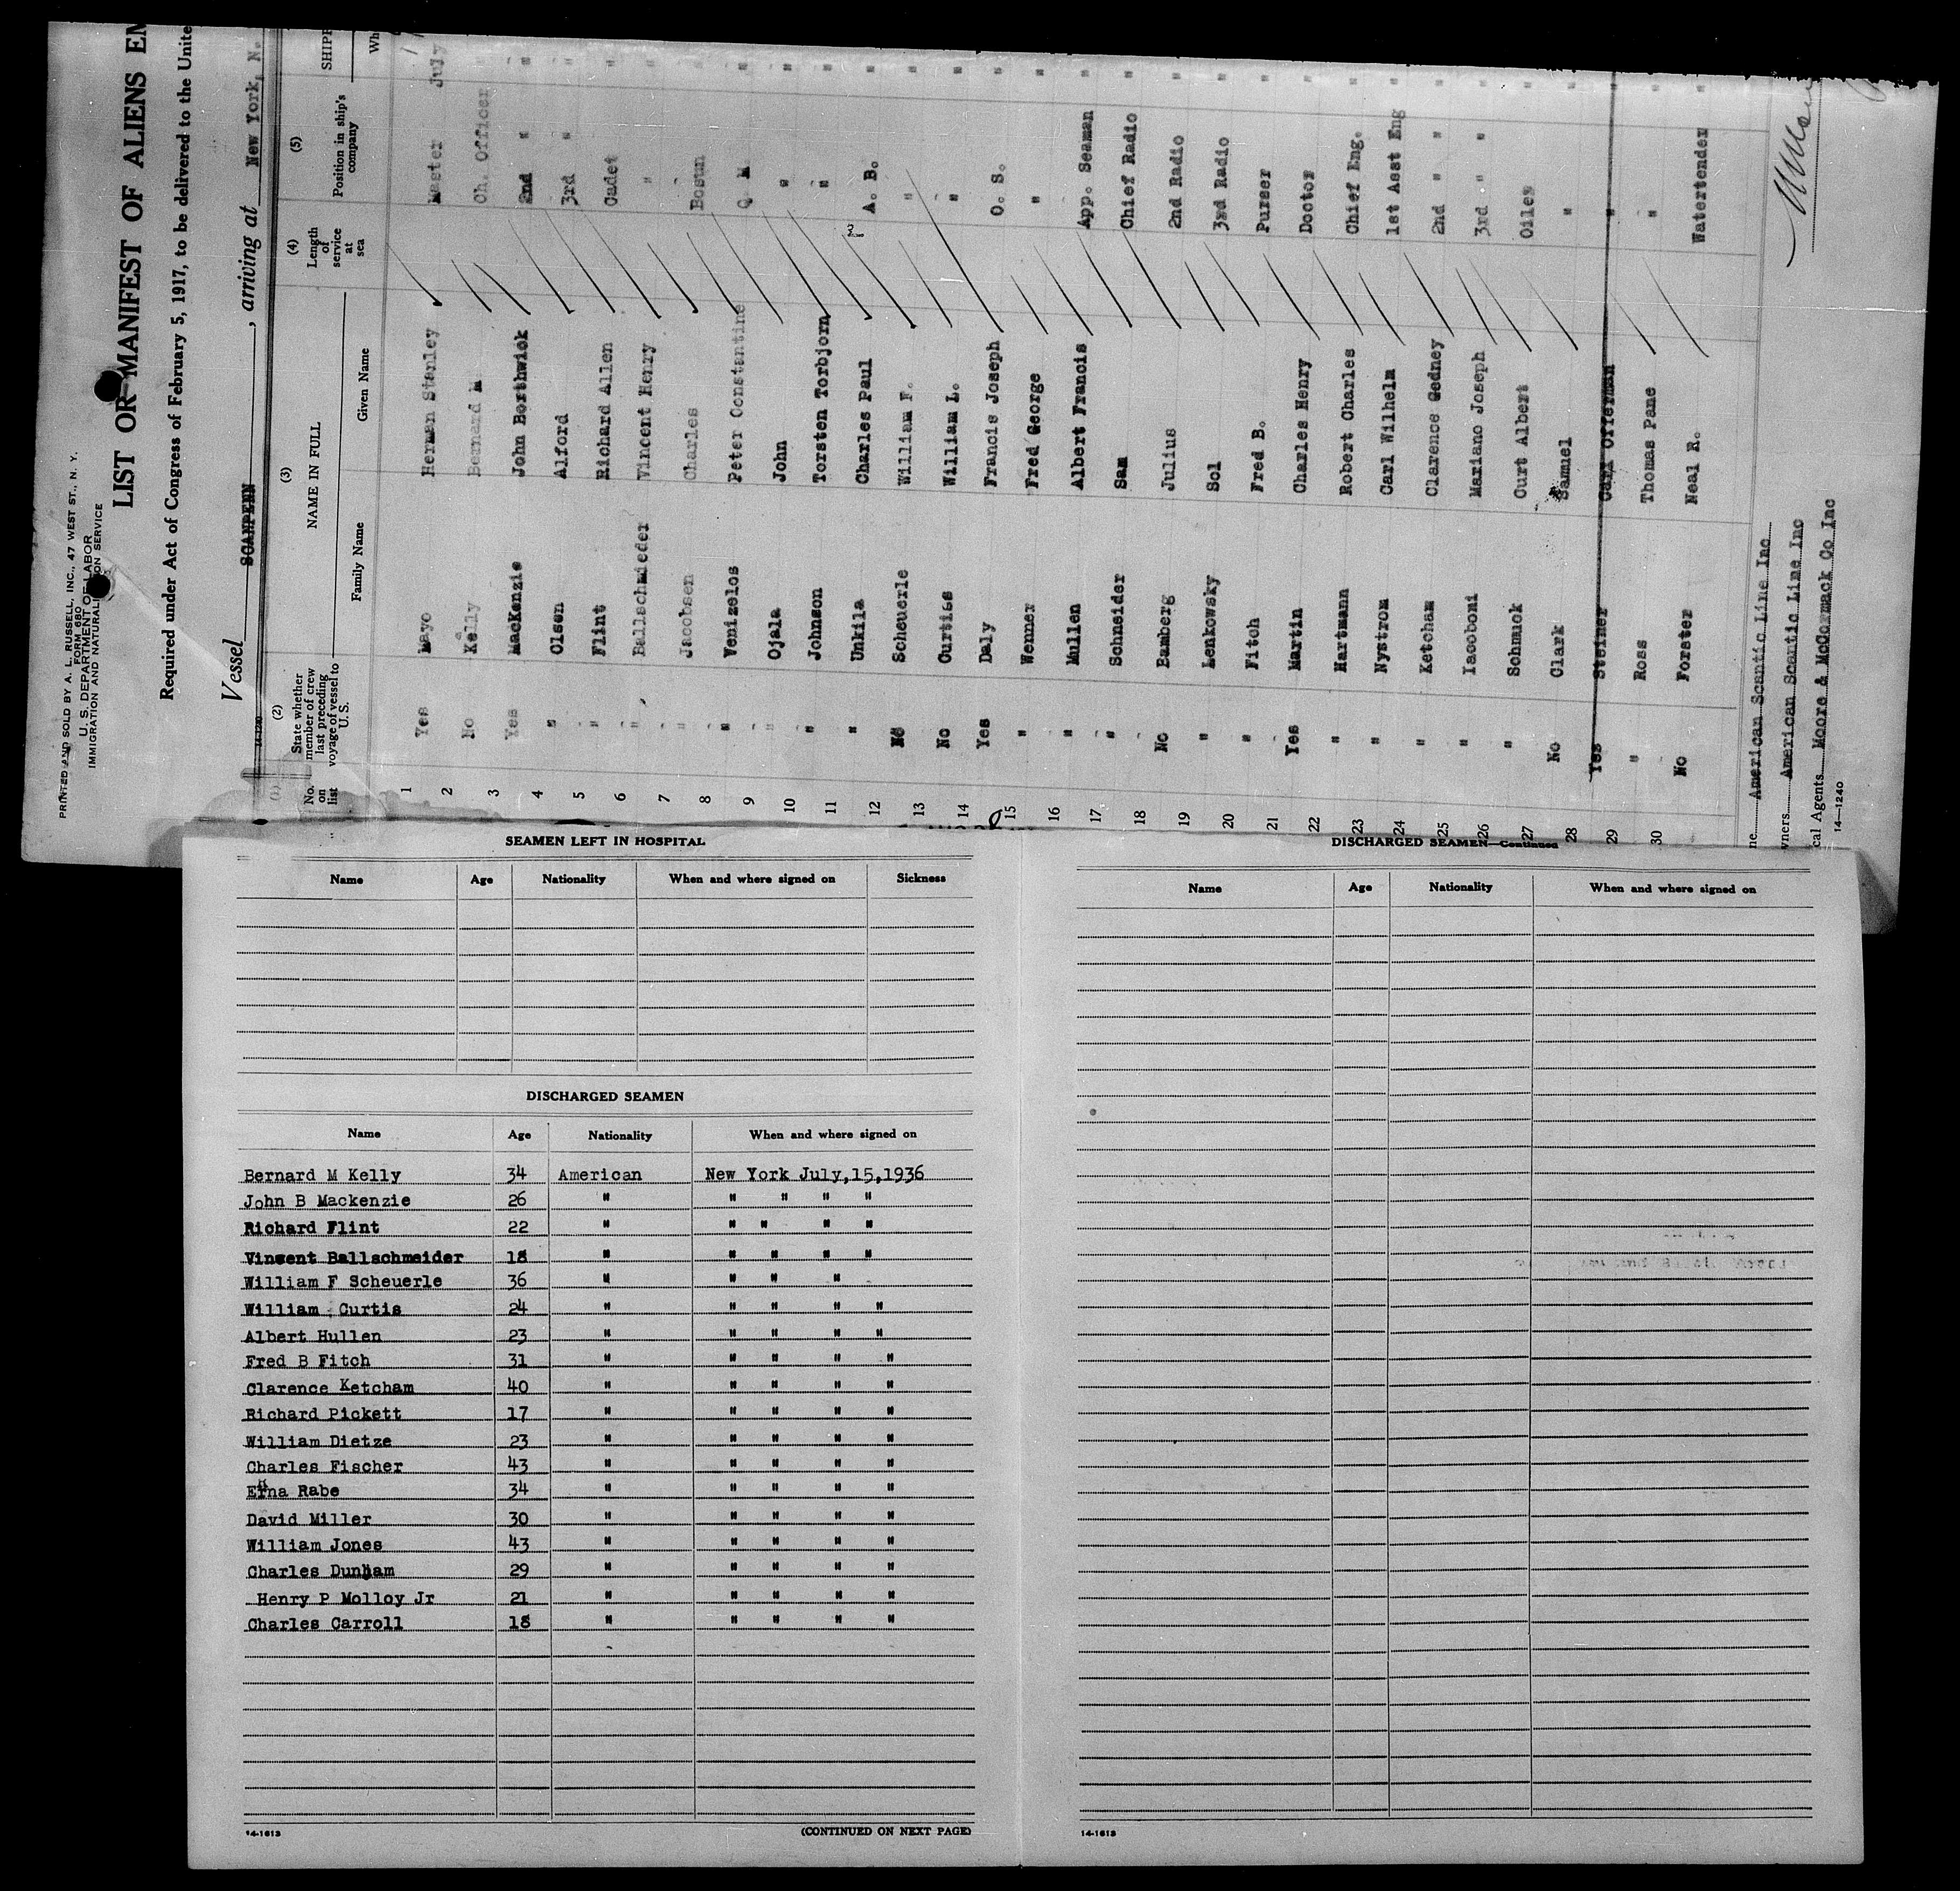 PRINTED AND SOLD BY A. L. RUSSELL, INC., 47 WEST ST., N. Y.
FORM 680
U. S. DEPARTMENT OF LABOR
IMMIGRATION AND NATURALIZATION SERVICE
LIST OR MANIFEST OF ALIENS EM
Required under Act of Congress of February 5, 1917, to be delivered to the Unite
Vessel SCANPENN , arriving at New York, N.
14-1240
(1) (2) (3) (4) (5)
No. on list State whether member of crew last preceding voyage of vessel to U. S. NAME IN FULL Length of service at sea Position in ship's company SHIPP
Family Name Given Name Wh
1 Yes Mayo Herman Stanley Master July
2 No Kelly Bernard M Ch. Officer "
3 Yes MacKenzie John Borthwick 2nd " "
4 " Olsen Alford 3rd " "
5 " Flint Richard Allen Cadet "
6 " Ballschmieder Vincent Henry " "
7 " Jacobsen Charles Bosun "
8 " Venizelos Peter Constantine Q. M. "
9 " Ojala John " "
10 " Johnson Torsten Torbjorn " "
11 " Unkila Charles Paul A. B. "
12 No Scheuerle William F. " "
13 No Curtiss William L. " "
14 Yes Daly Francis Joseph O. S. "
15 " Wenner Fred George " "
16 " Mullen Albert Francis App. Seaman "
17 " Schneider Sam Chief Radio "
18 No Bamberg Julius 2nd Radio "
19 " Lenkowsky Sol 3rd Radio "
20 " Fitch Fred B. Purser "
21 Yes Martin Charles Henry Doctor "
22 " Hartmann Robert Charles Chief Eng. "
23 " Nystrom Carl Wilhelm 1st Asst Eng "
24 " Ketcham Clarence Gedney 2nd " " "
25 " Iacoboni Mariano Joseph 3rd " " "
26 " Schmick Curt Albert Oiler "
27 No Clark Samuel " "
28 Yes Steiner Carl Offerman " "
29 " Ross Thomas Pane " "
30 No Forster Neal R. Watertender "
ne American Scantic Line Inc
wners American Scantic Line Inc
cal Agents Moore & McCormack Co Inc
14—1240
SEAMEN LEFT IN HOSPITAL
Name Age Nationality When and where signed on Sickness
DISCHARGED SEAMEN
Name Age Nationality When and where signed on
Bernard M Kelly 34 American New York July,15,1936
John B Mackenzie 26 " " " " "
Richard Flint 22 " " " " "
Vinsent Ballschmeider 18 " " " " "
William F Scheuerle 36 " " " "
William Curtis 24 " " " " "
Albert Hullen 23 " " " " "
Fred B Fitch 31 " " " " "
Clarence Ketcham 40 " " " " "
Richard Pickett 17 " " " " "
William Dietze 23 " " " " "
Charles Fischer 43 " " " " "
Erna Rabe 34 " " " " "
David Miller 30 " " " " "
William Jones 43 " " " " "
Charles Dunham 29 " " " " "
Henry P Molloy Jr 21 " " " " "
Charles Carroll 18 " " " " "
14-1613 (CONTINUED ON NEXT PAGE)
DISCHARGED SEAMEN—Continued
Name Age Nationality When and where signed on
14-1613